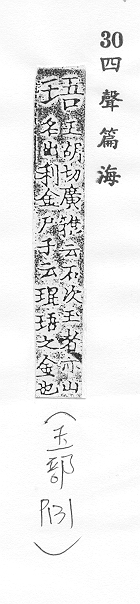 30 四聲篇海
五胡切廣雅云石次玉者亦山
名出利金尸子云琨珸之金也
(玉部 P131)